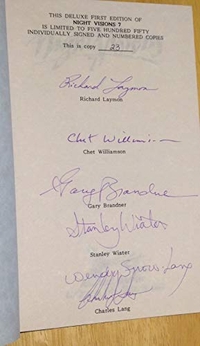 THIS DELUXE FIRST EDITION OF
NIGHT VISIONS 7
IS LIMITED TO FIVE HUNDRED FIFTY
INDIVIDUALLY SIGNED AND NUMBERED COPIES
This is copy 23
Richard Laymon
Richard Laymon
Chet Williamson
Chet Williamson
Gary Brandner
Gary Brandner
Stanley Wiater
Stanley Wiater
Wendy Snow Lang
Charles Lang